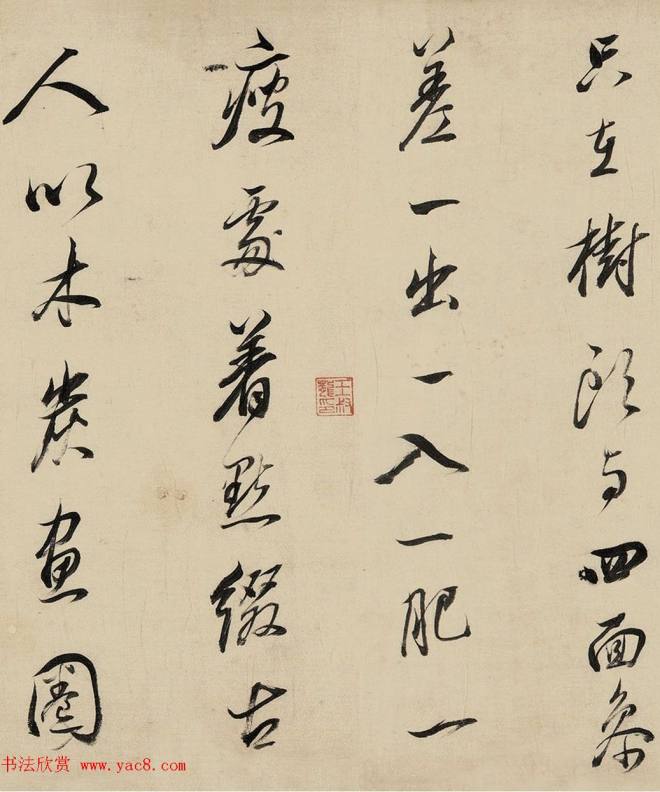 只在樹頭与四面參
差一出一入一肥一
瘦處着點綴古
人以木炭畫圈
书法欣赏 www.yac8.com